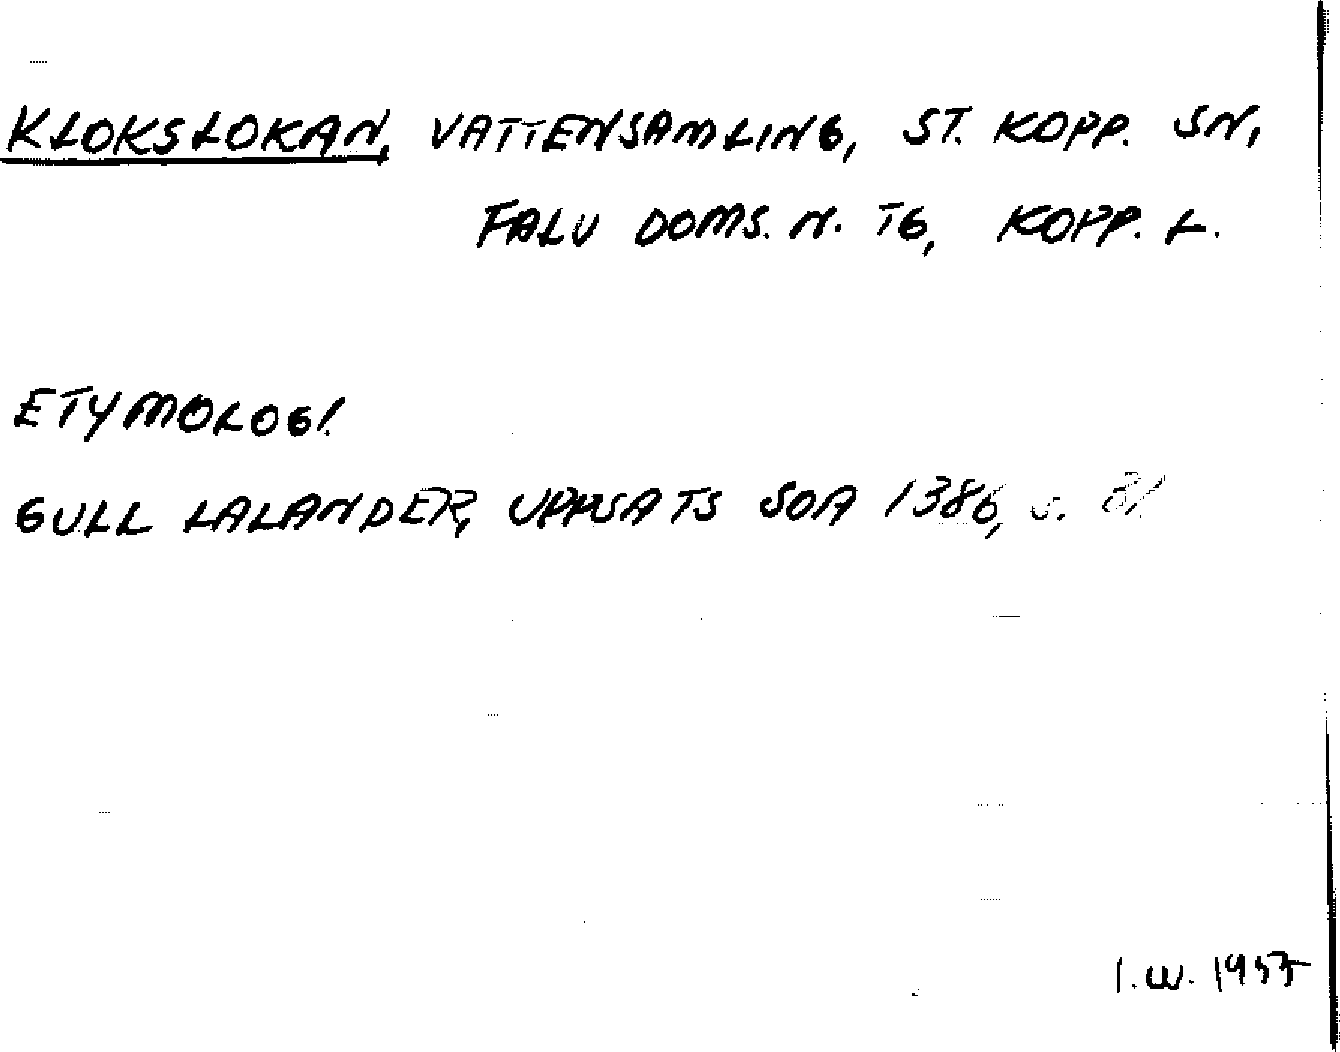 KLOKSLOKAN, VATTENSAMLING, ST. KOPP. SN,
FALU DOMS. N. TG, KOPP. L.
ETYMOLOGI.
GULL LALANDER, UPPSATS SOA 1386, S. 81
I.W. 1957